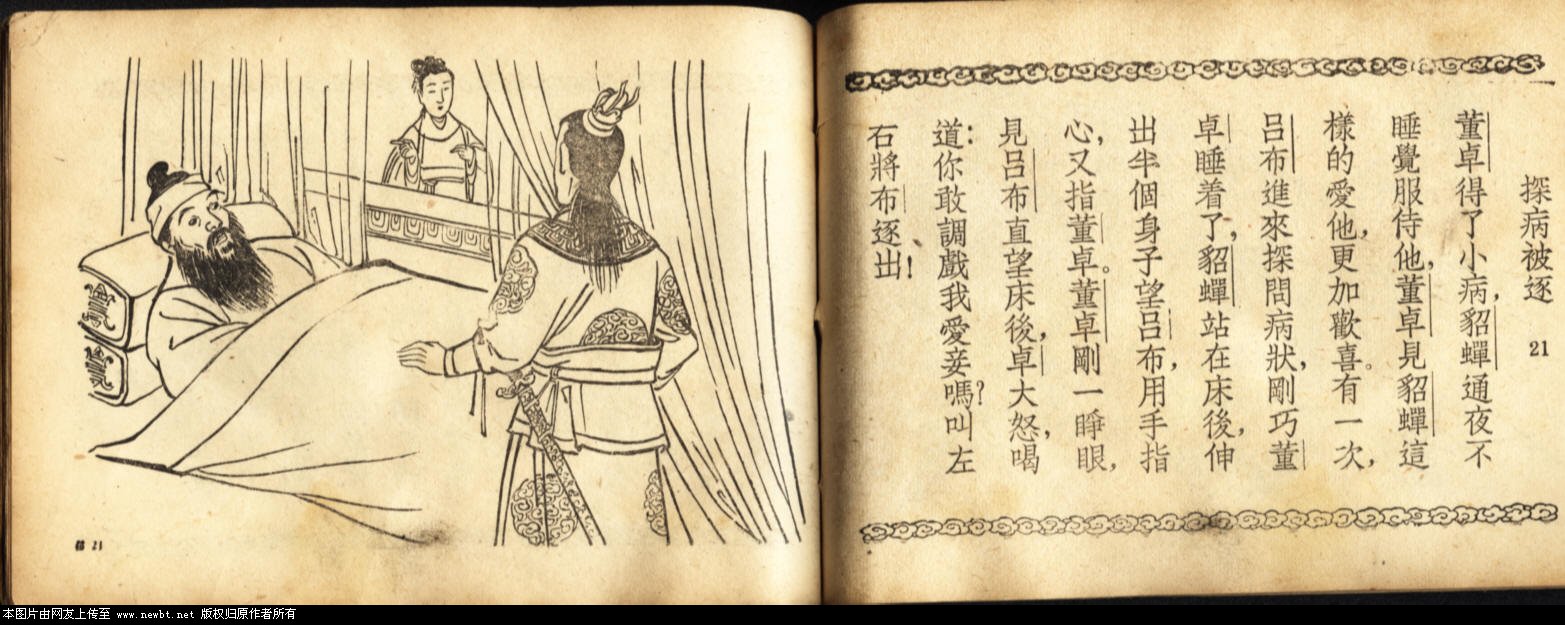 探病被逐 21
董卓得了小病，貂蟬通夜不
睡覺服侍他，董卓見貂蟬這
樣的愛他，更加歡喜。有一次，
呂布進來探問病狀，剛巧董
卓睡着了，貂蟬站在床後，伸
出半個身子望呂布，用手指
心，又指董卓。董卓剛一睜眼，
見呂布直望床後，卓大怒，喝
道：你敢調戲我愛妾嗎？叫左
右將布逐出！
21
本图片由网友上传至 www.newbt.net 版权归原作者所有